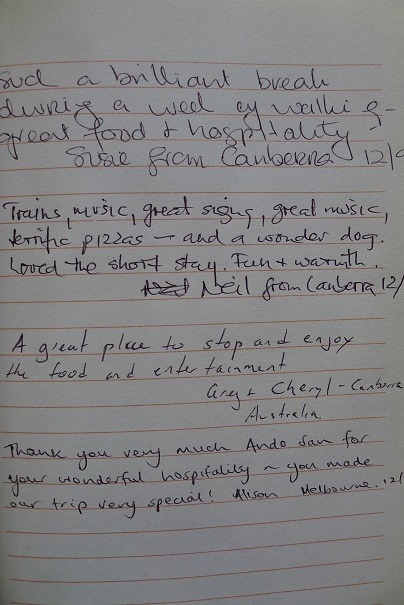 Such a brilliant break
during a week of walking -
great food + hospitality
Susie from Canberra 12/
Trains, music, great signs, great music,
terrific pizzas — and a wonder dog.
Loved the short stay. Fun + warmth.
Neil from Canberra 12/
A great place to stop and enjoy
the food and entertainment
Greg + Cheryl - Canberra
Australia.
Thank you very much Ando San for
your wonderful hospitality ~ you made
our trip very special! Alison Melbourne. 12/